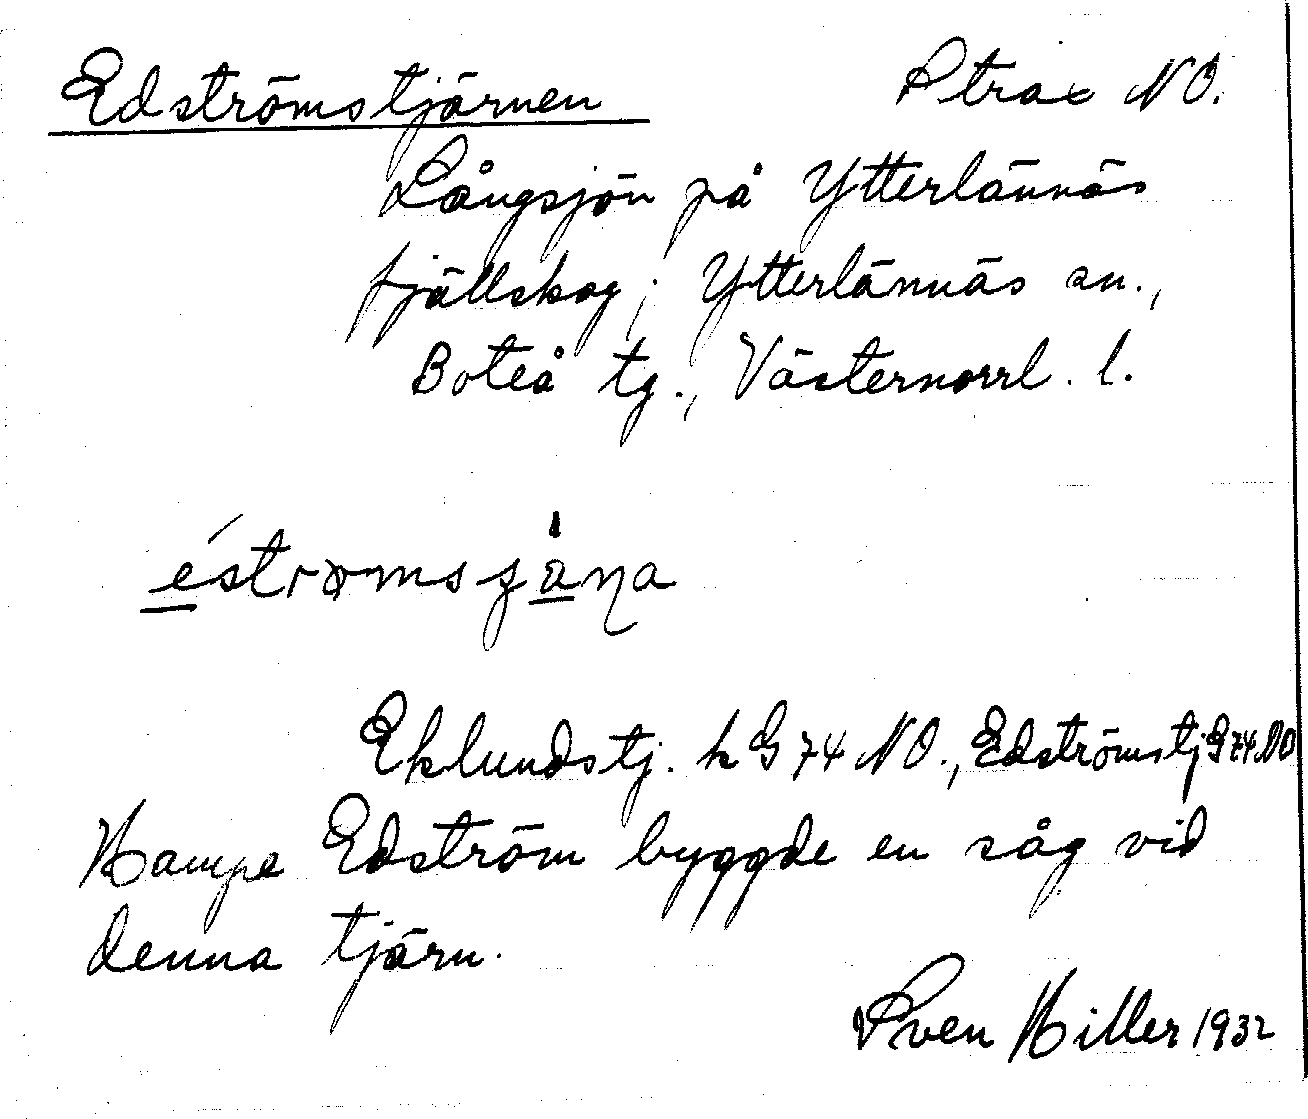 Edströmstjärnen Strax NO.
Långsjön på Ytterlännäs
fjällskog; Ytterlännäs sn.,
Boteå tg., Västernorrl. l.
éstrømsʃa̍ɳa
Eklundstj. k G 74 NO., Edströmstj G74 NO
Hampe Edström byggde en såg vid
denna tjärn.
Sven Hiller 1932